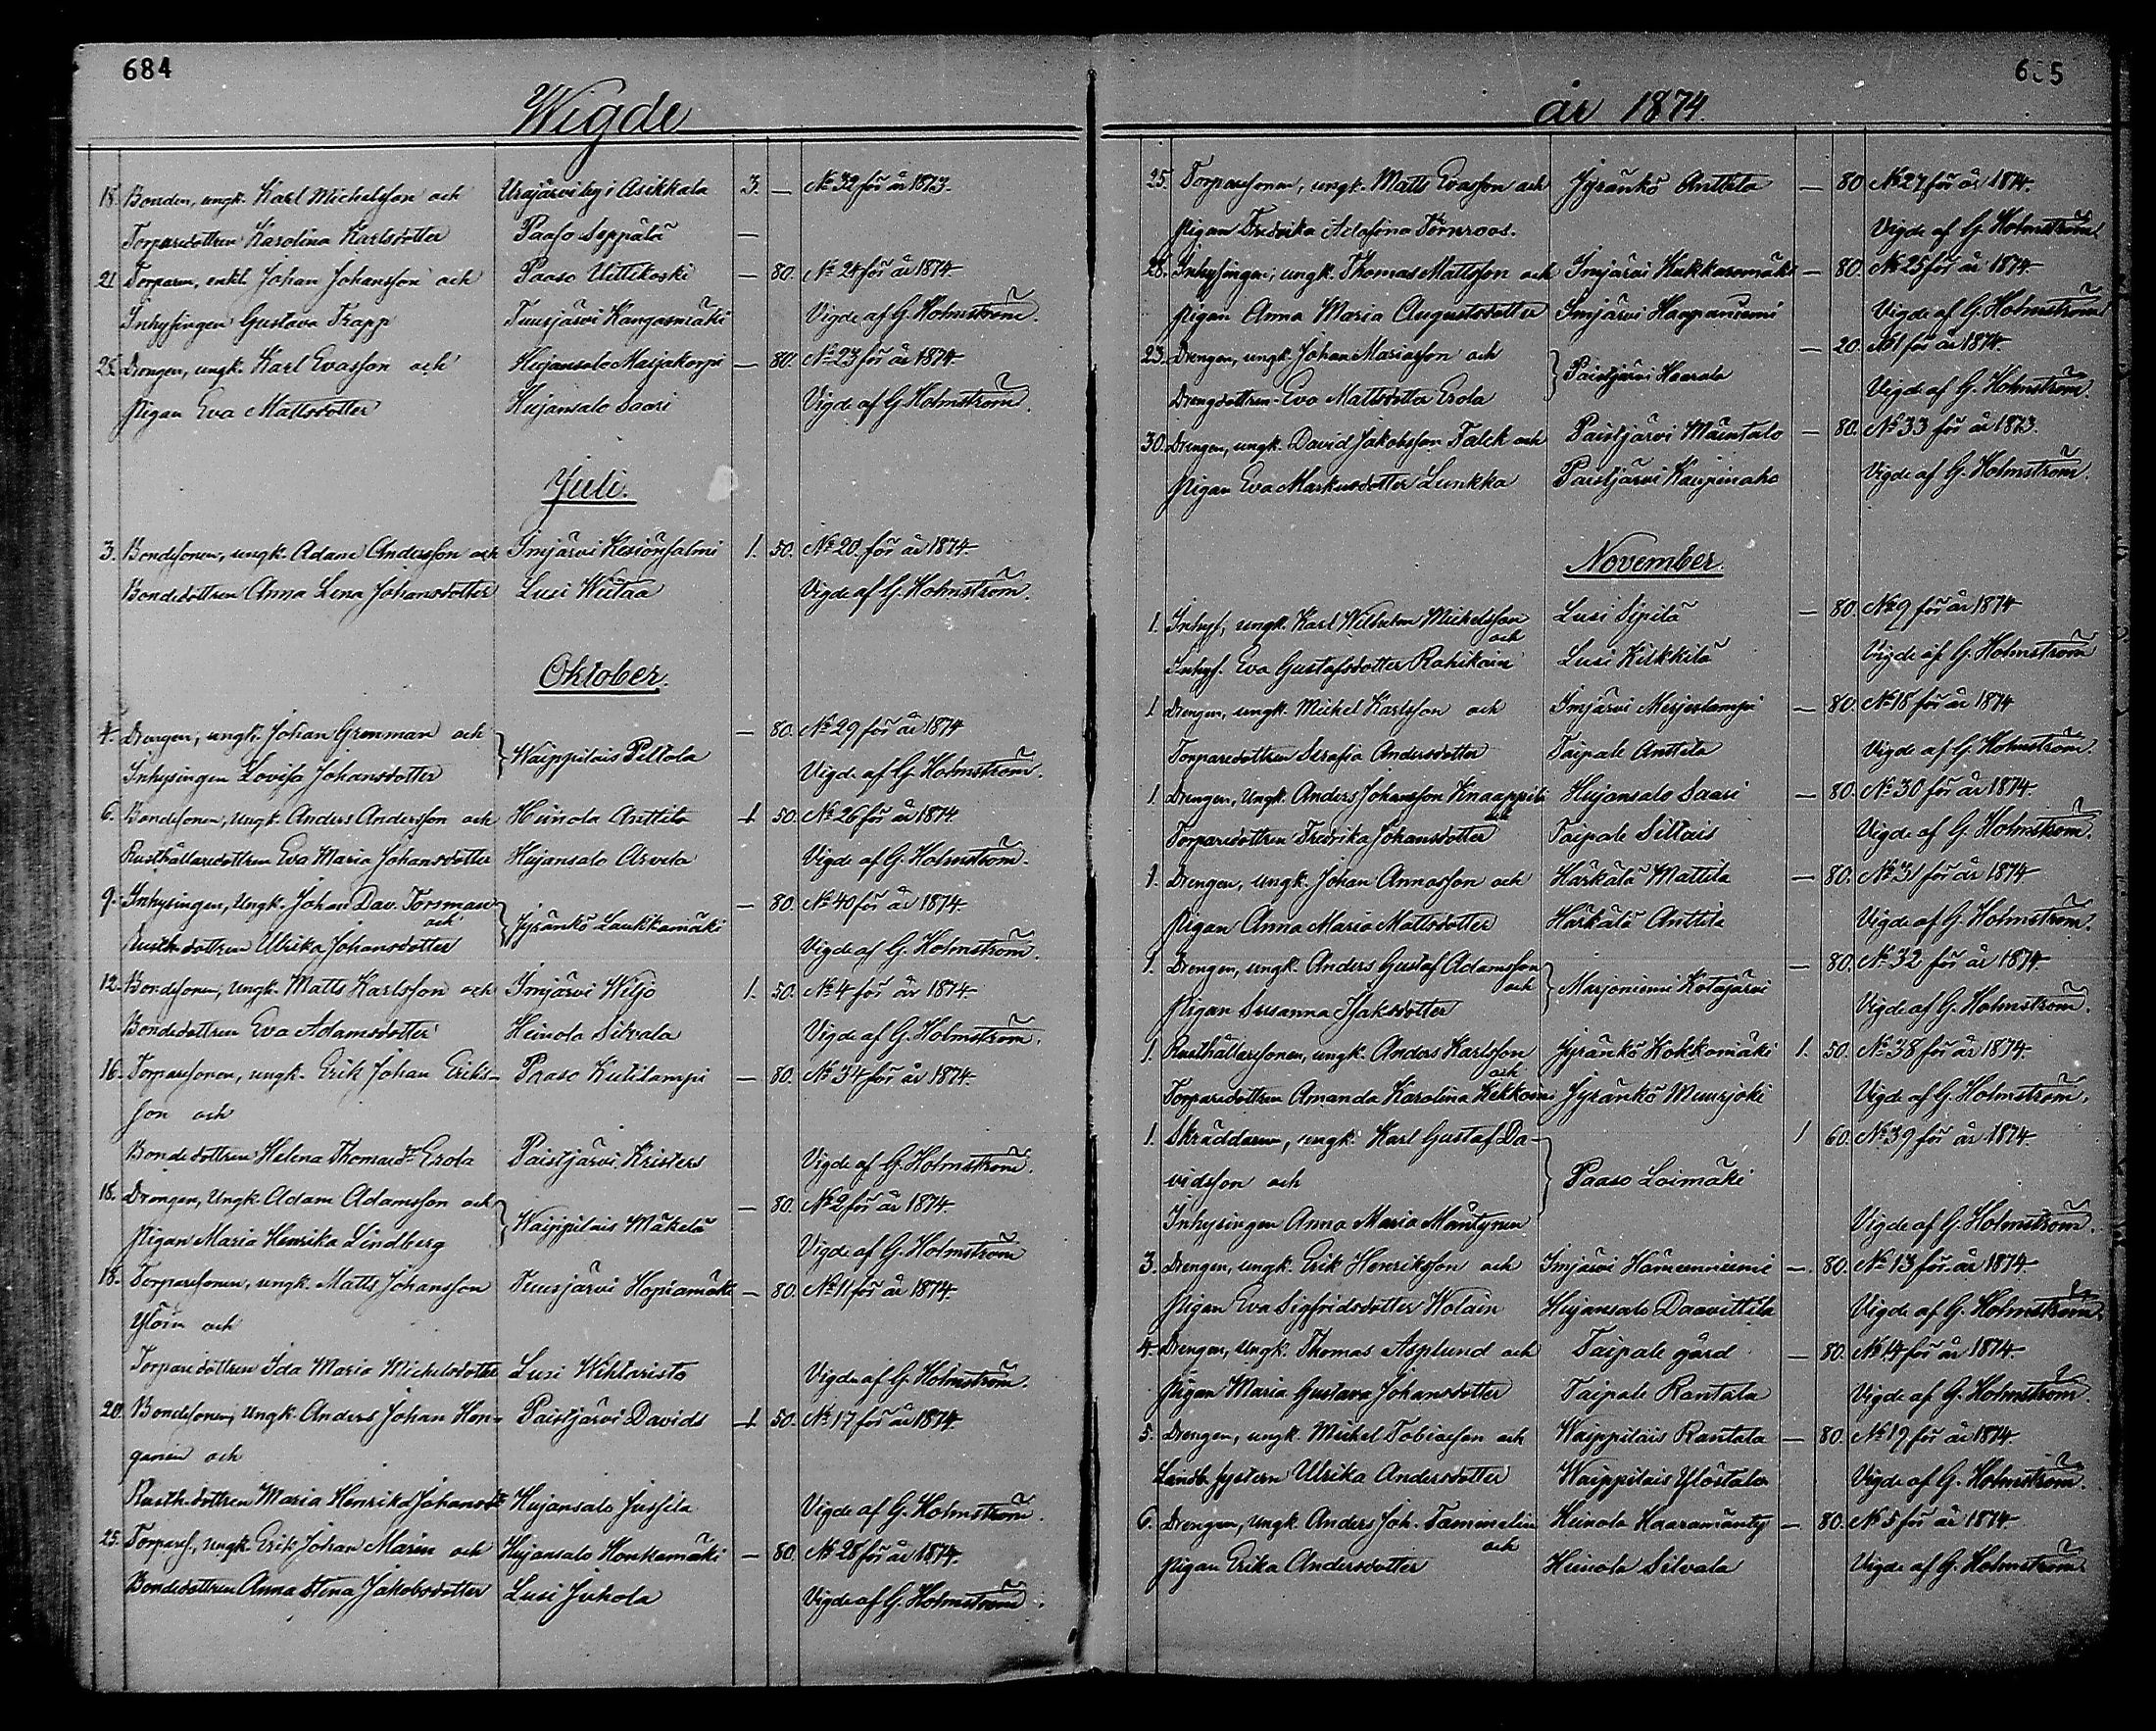 684
Wigde
18. Bonden, ungk. Karl Michelsson och Urajärvi by i Asikkala 3. — No 32 för år 1873.
Torparedottren Karolina Karlsdotter Paaso Seppälä —
21. Torparen, enkl. Johan Johansson och Paaso Uittikoski — 80. No 24 för år 1874
Inhysingen Gustava Trapp Tuusjärvi Kangasmäki Vigde af G. Holmström.
25. Drengen, ungk. Karl Evasson och Hujansalo Masjakorpi — 80. No 23 för år 1874.
Pigan Eva Mattsdotter Hujansalo Saari Vigde af G. Holmström.
Juli.
3. Bondesonen, ungk. Adam Andersson och Imjärvi Kesiönsalmi 1. 50. No 20. för år 1874
Bondedottren Anna Lena Johansdotter Lusi Wiitaa Vigde af G. Holmström.
Oktober.
4. Drengen, ungk. Johan Grenman och Waippilais Peltola — 80. No 29 för år 1874
Inhysingen Lovisa Johansdotter Vigde af G. Holmström.
6. Bondesonen, ungk. Anders Andersson och Heinola Anttila 1 50. No 26 för år 1874.
Rusthållaredottren Eva Maria Johansdotter Hujansalo Arvela Vigde af G. Holmström.
9. Inhysingen, Ungk. Johan Dav. Forsman och Jyränkö Laukkamäki — 80. No 40 för år 1874.
Rusth. dottren Ulrika Johansdotter Vigde af G. Holmström.
12. Bondesonen, ungk. Matts Karlsson och Imjärvi Weljo 1. 50. No 4 för år 1874.
Bondedottren Eva Adamsdotter Heinola Silvala Vigde af G. Holmström.
16. Torparesonen, ungk. Erik Johan Eriks- Paaso Kutilampi — 80. No 34 för år 1874.
son och
Bondedottren Helena Thomasdr Erola Paistjärvi Kristers Vigde af G. Holmström.
18. Drengen, Ungk. Adam Adamsson och Waippilais Mäkelä — 80. No 2 för år 1874
Pigan Maria Henrika Lindberg Vigde af G. Holmström
18. Torparesonen, ungk. Matts Johansson Tuusjärvi Hopiamäki — 80. No 11 för år 1874.
och
Torparedottren Ida Maria Michelsdotter Lusi Wihtaristo Vigde af G. Holmström.
20. Bondesonen, Ungk. Anders Johan Hon- Paistjärvi Davids 1 50. No 17 för år 1874.
ganen och
Rusth. dottren Maria Henrika Johansdr Hujansalo Jussila Vigde af G. Holmström.
25. Torpares., ungk. Erik Johan Marin och Hujansalo Honkamäki — 80. No 28 för år 1874.
Bondedottren Anna Stina Jakobsdotter Lusi Jukola Vigde af G. Holmström.
6 5
år 1874.
25. Torparesonen, ungk. Matts Evasson och Jyränkö Anttila — 80 No 27 för år 1874.
Pigan Fredrika Adolfina Törnroos. Vigde af G. Holmström
28. Inhysingen, ungk. Thomas Mattsson och Imjärvi Kukkaromäki — 80. No 25 för år 1874.
Pigan Anna Maria Augustsdotter Imjärvi Haapaniemi Vigde af G. Holmström
23. Drengen, ungk. Johan Mariasson och Paistjärvi Haavola — 20. No 1 för år 1874.
Drengdottren Eva Mattsdotter Erola Vigde af G. Holmström.
30. Drengen, ungk. David Jakobsson Falck och Paistjärvi Mäentalo — 80. No 33 för år 1873.
Pigan Eva Markusdotter Lunkka Paistjärvi Kaupinaho Vigde af G. Holmström.
November.
1. Inhys, ungk. Karl Wilhelm Michelsson och Lusi Sipilä — 80. No 9 för år 1874
Inhys. Eva Gustafsdotter Rahikain Lusi Kilkkilä Vigde af G. Holmström
1 Drengen, ungk. Michel Karlsson och Imjärvi Merjeslampi — 80. No 18 för år 1874
Torparedottren Serafia Andersdotter Taipale Anttila Vigde af G. Holmström.
1. Drengen, Ungk. Anders Johansson Knaappila och Hujansalo Saari — 80. No 30 för år 1874.
Torparedottren Fredrika Johansdotter Taipale Siltais Vigde af G. Holmström.
1. Drengen, ungk. Johan Annasson och Härkälä Mattila — 80. No 31 för år 1874
Pigan Anna Maria Mattsdotter Härkälä Anttila Vigde af G. Holmström.
1. Drengen, ungk. Anders Gustaf Adamsson och Marjoniemi Kotajärvi — 80. No 32 för år 1874.
Pigan Susanna Isaksdotter Vigde af G. Holmström.
1. Rusthållaresonen, ungk. Anders Karlsson och Jyränkö Kokkomäki 1. 50. No 38 för år 1874.
Torparedottren Amanda Karolina Kekkoin Jyränkö Muurjoki Vigde af G. Holmström.
1. Skräddaren, ungk. Karl Gustaf Da- 1 60. No 39 för år 1874
vidsson och Paaso Loimäki
Inhysingen Anna Maria Mäntynen Vigde af G. Holmström.
3. Drengen, ungk. Erik Henriksson och Imjärvi Hämeenniemi — 80. No 13 för år 1874.
Pigan Eva Sigfridsdotter Wolain Hujansalo Daavittila Vigde af G. Holmström.
4. Drengen, Ungk. Thomas Asplund och Taipale gård — 80. No 14 för år 1874.
Pigan Maria Gustava Johansdotter Taipale Rantala Vigde af G. Holmström.
5. Drengen, ungk. Michel Tobiasson och Waippilais Rantala — 80. No 19 för år 1874.
Landb. systern Ulrika Andersdotter Waippilais Ylöstalo Vigde af G. Holmström.
6. Drengen, Ungk. Anders Joh. Tammelin och Heinola Haaramänty — 80. No 5 för år 1874.
Pigan Erika Andersdotter Heinola Silvala Vigde af G. Holmström.